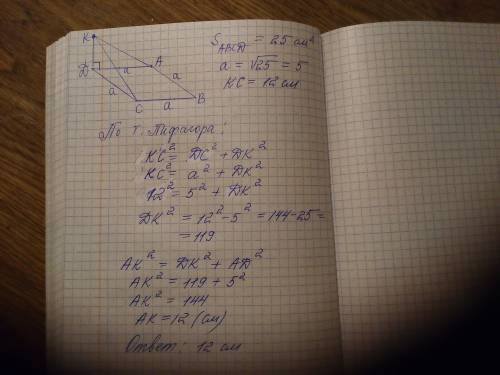 K
D
A
C
B
a
a
a
a
S_ABCD = 25 см²
a = √25 = 5
KC = 12 см
По т. Пифагора:
KC² = DC² + DK²
KC² = a² + DK²
12² = 5² + DK²
DK² = 12² - 5² = 144 - 25 =
= 119
AK² = DK² + AD²
AK² = 119 + 5²
AK² = 144
AK = 12 (см)
Ответ: 12 см